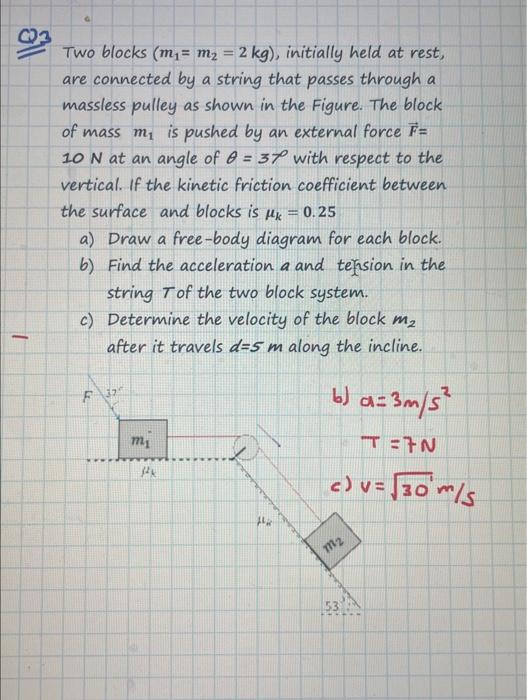 Q3
Two blocks (m₁= m₂ = 2 kg), initially held at rest,
are connected by a string that passes through a
massless pulley as shown in the Figure. The block
of mass m₁ is pushed by an external force F⃗=
10 N at an angle of θ = 37° with respect to the
vertical. If the kinetic friction coefficient between
the surface and blocks is μₖ = 0.25
a) Draw a free-body diagram for each block.
b) Find the acceleration a and tension in the
string T of the two block system.
c) Determine the velocity of the block m₂
after it travels d=5 m along the incline.
F 37°
b) a=3m/s²
m₁
T=7N
μₖ
c) v=√30 m/s
μₖ
m₂
53°